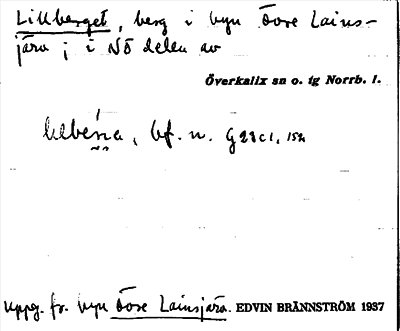 Lillberget, berg i byn Övre Lains-
järv; i NÖ delen av
Överkalix sn o. tg Norrb. l.
bf. n. G23c1, 152
Uppg. fr. byn Övre Lainsjärv. EDVIN BRÄNNSTRÖM 1937